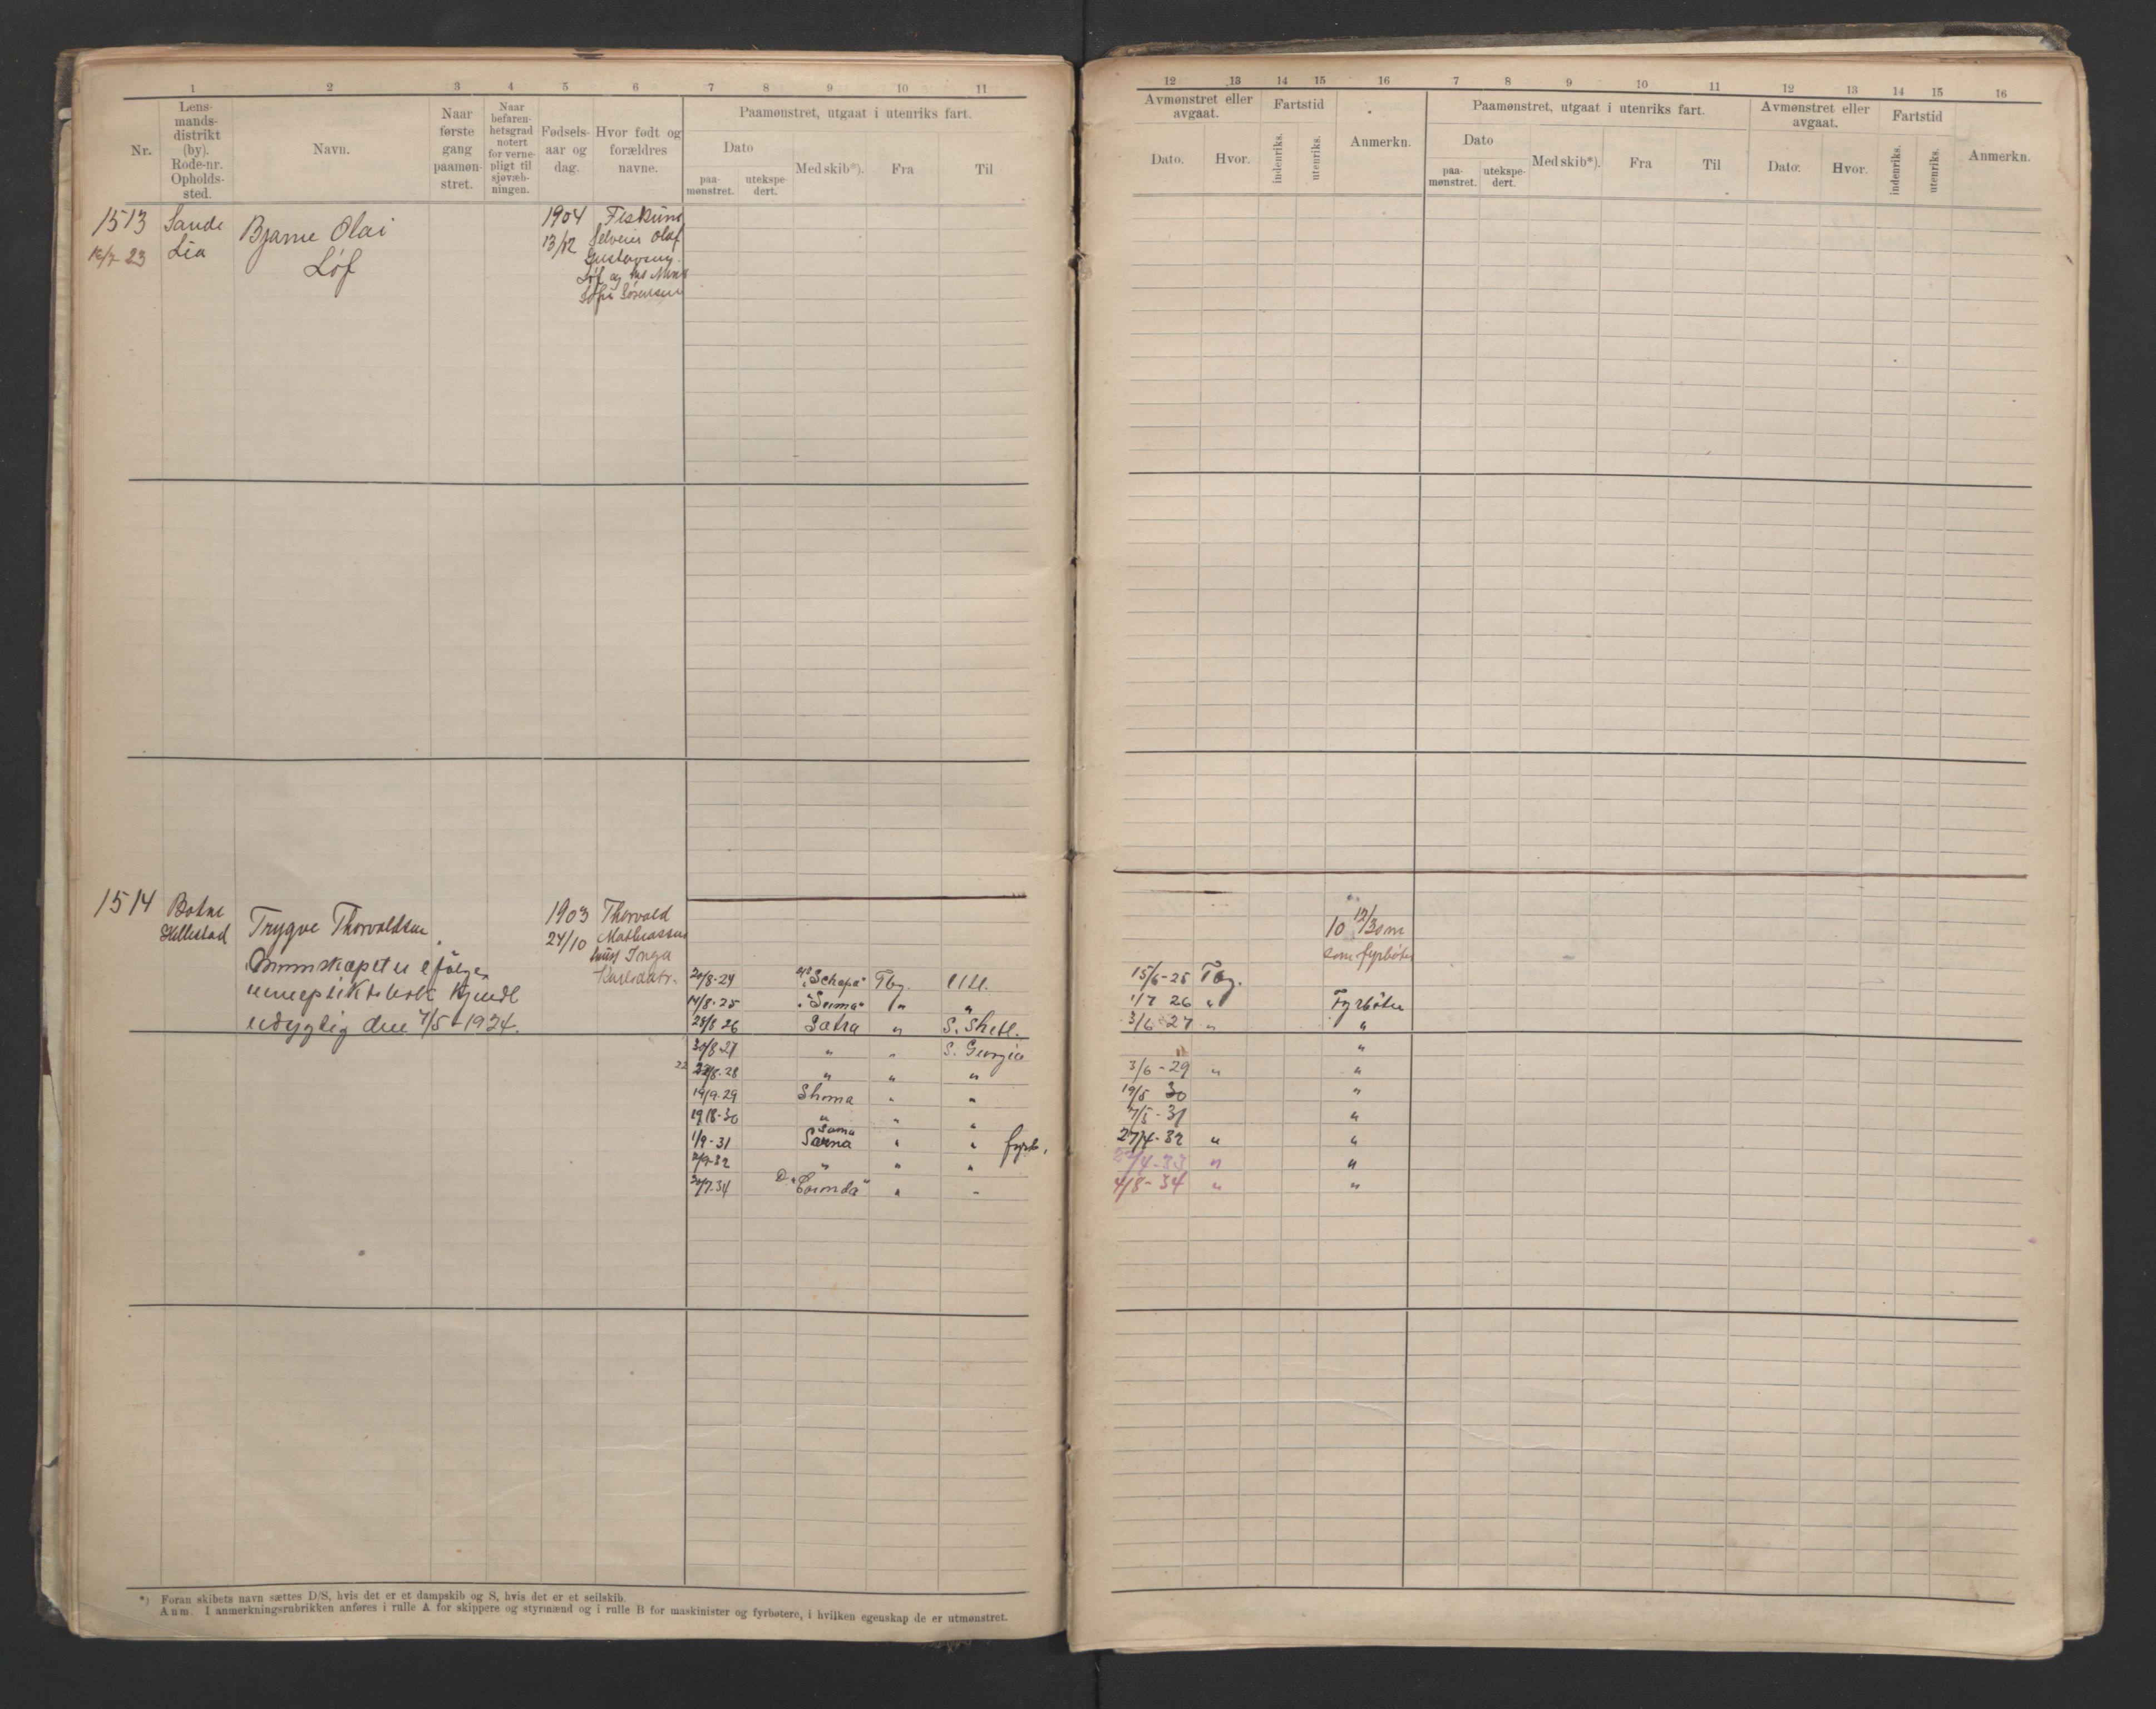 1 2 3 4 5 6 7 8 9 10 11
Nr.
Lens-
mands-
distrikt
(by).
Rode-nr.
Opholds-
sted.
Navn.
Naar
første
gang
paamøn-
stret.
Naar
befaren-
hetsgrad
notert
for verne-
pligt til
sjøvæb-
ningen.
Fødsels-
aar og
dag.
Hvor født og
forældres
navne.
Paamønstret, utgaat i utenriks fart.
Dato
paa-
mønstret.
utekspe-
dert.
Med skib*).
Fra
Til
1513 Sande Bjarne Olai 1904 Fiskum
12/7-23 Lia Løf 13/12 Selveier Olaf
Gustavsen
Løf og
Sofie Sørensen
1514 Botne Trygve Thorvaldsen 1903 Thorvald
Hillestad 24/10 Mathiassen
Inga
Karlsdatr.
kjendt
udygtig den 7/5-1924.
20/8-24 "Schapa" Tbg.
14/8-25 "Suma" " "
28/8 26 Satra " S. Shetl.
30/8-27 " " S. Georgia
22 22/8-28 " " "
14/9-29 Shoma " "
19/8-30 " " "
Suma
1/9-31 Sarna " " fyrb.
2/9-32 " " "
30/7-34 D. " " -
*) Foran skibets navn sættes D/S, hvis det er et dampskib og S, hvis det er et seilskib.
Anm. I anmerkningsrubrikken anføres i rulle A for skippere og styrmænd og i rulle B for maskinister og fyrbøtere, i hvilken egenskap de er utmønstret.
12 13 14 15 16 7 8 9 10 11 12 13 14 15 16
Avmønstret eller
avgaat.
Dato.
Hvor.
Fartstid
indenriks.
utenriks.
Anmerkn.
Paamønstret, utgaat i utenriks fart.
Dato
paa-
mønstret.
utekspe-
dert.
Med skib*).
Fra
Til
Avmønstret eller
avgaat.
Dato:
Hvor.
Fartstid
indenriks.
utenriks.
Anmerkn.
10 12/30 m
som fyrbøter
15/6-25 Tbg.
1/7 26 " Fyrbøter
3/6-27 " "
"
3/6-29 " "
19/5 30 "
7/5-31 "
27/4-32 " "
22/4-33 " "
4/8-34 " "